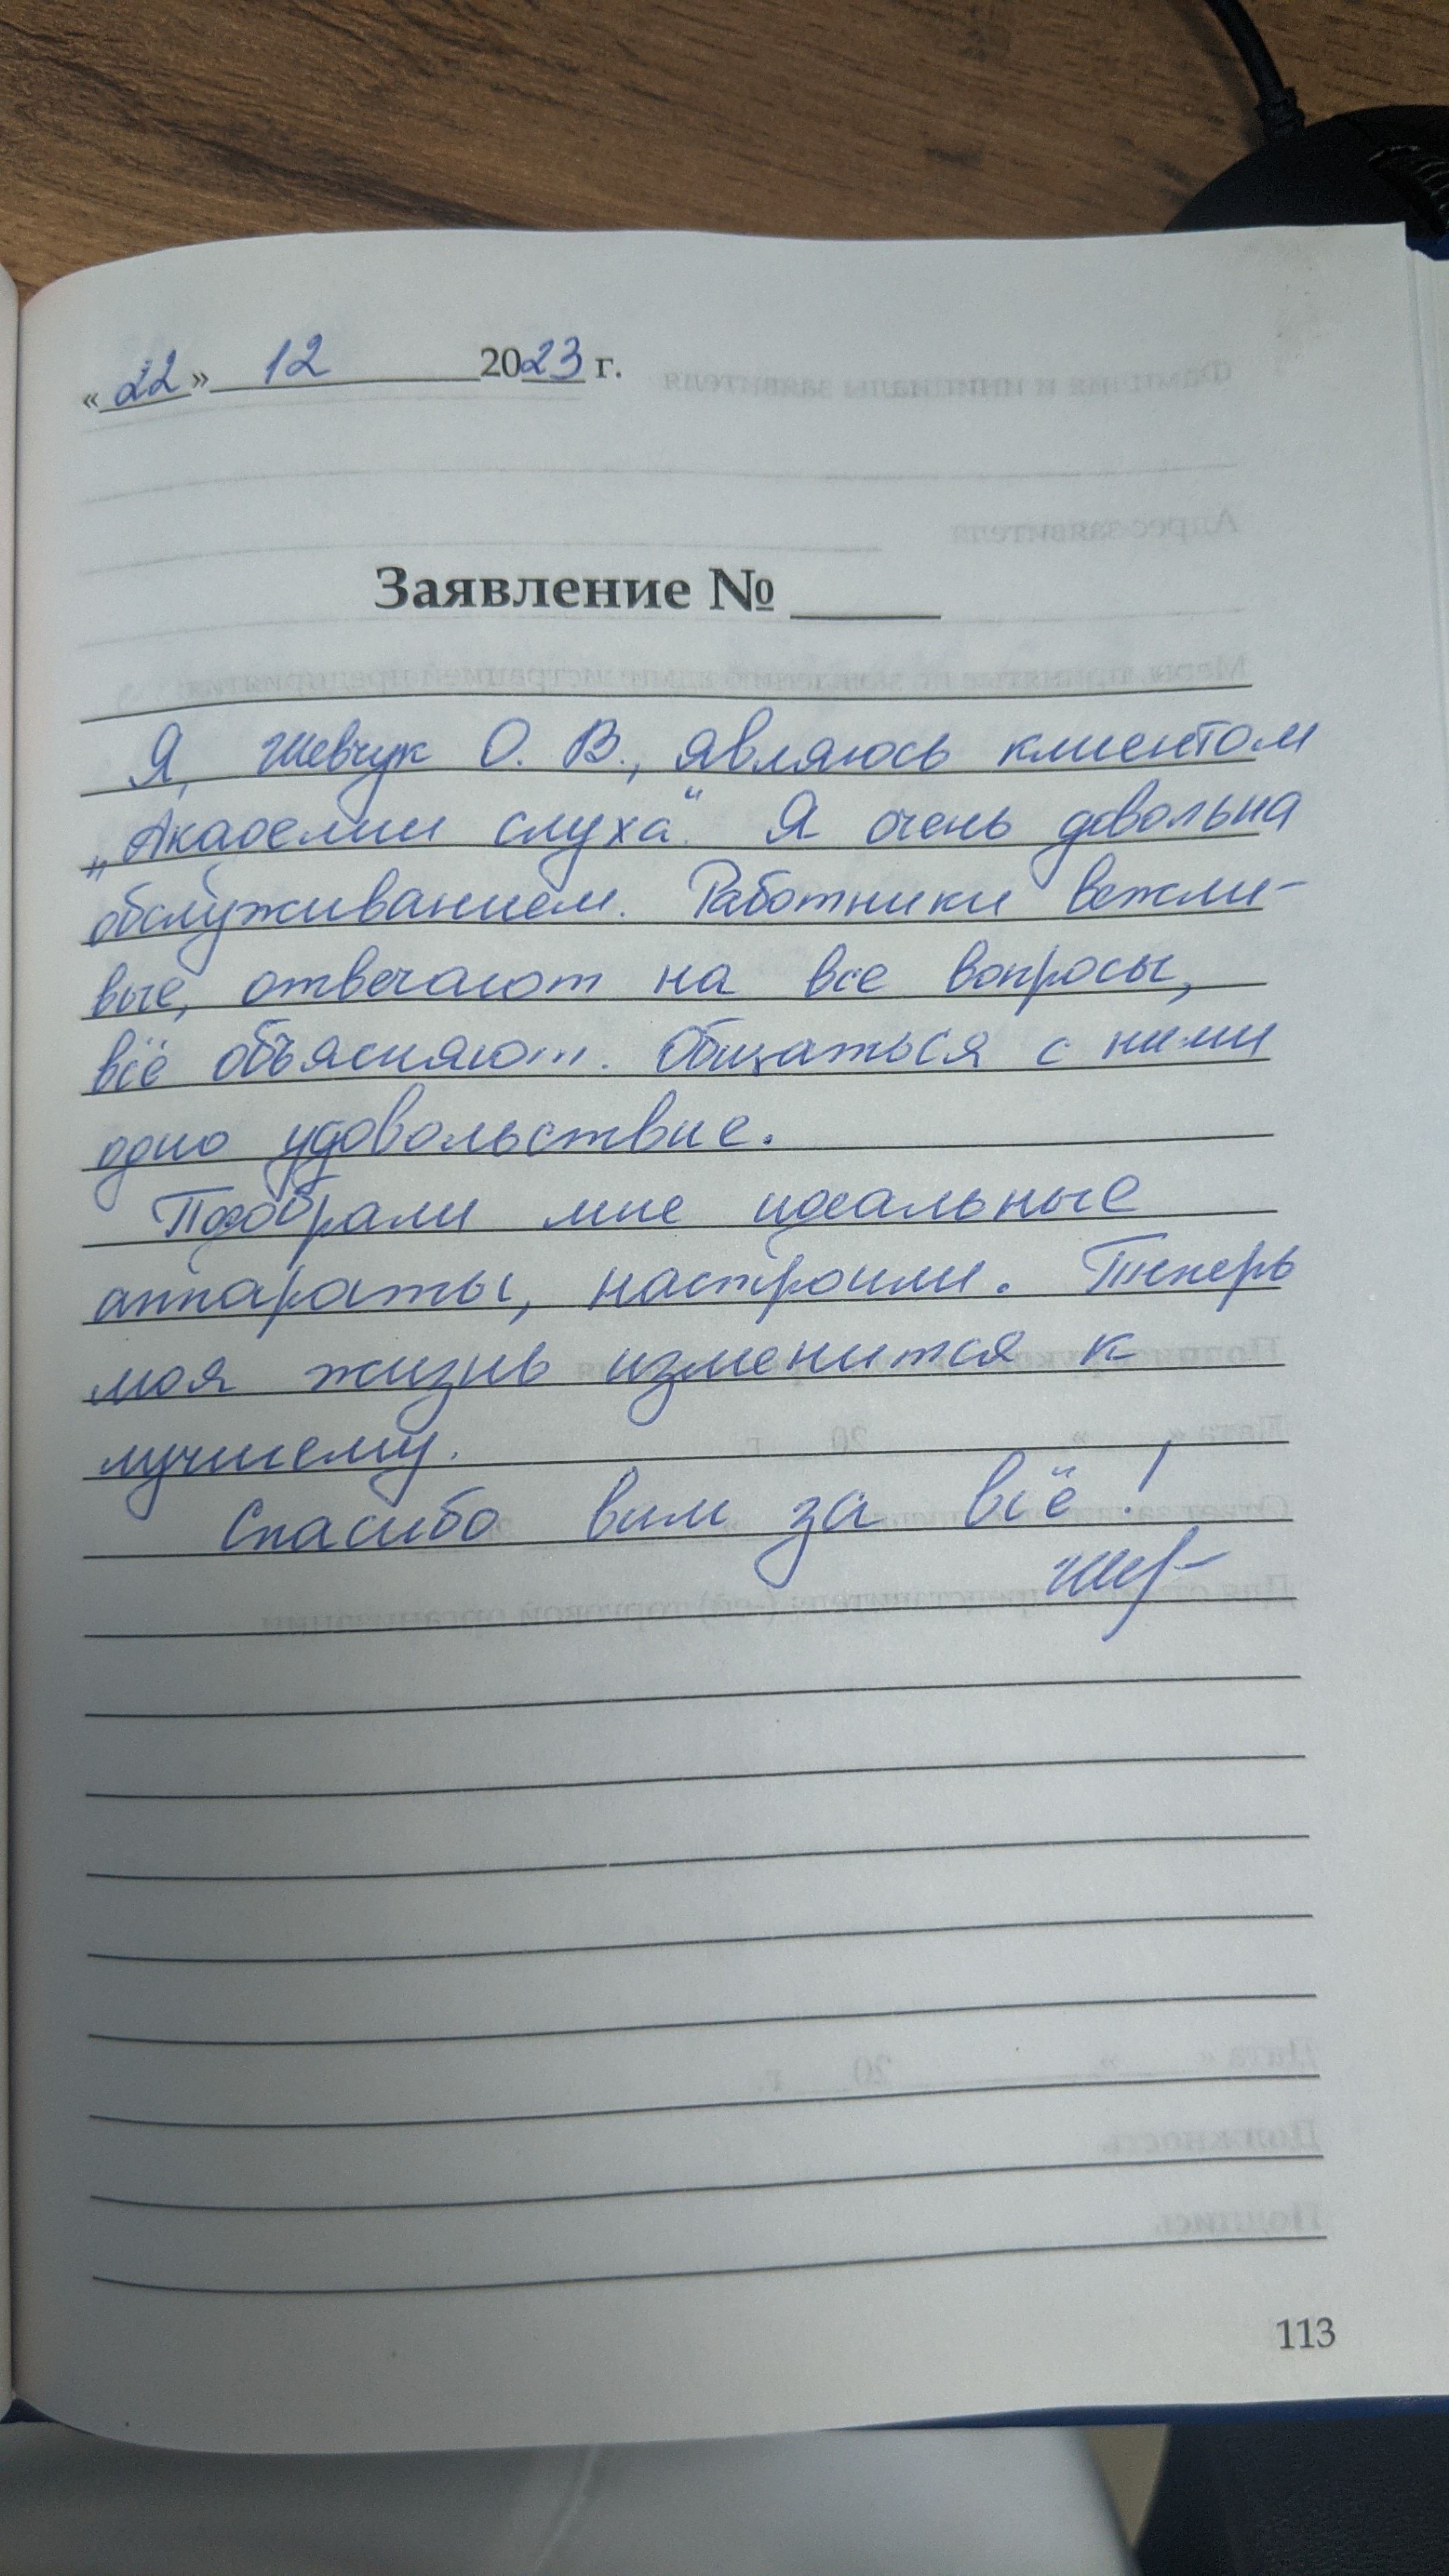 «22» 12 2023 г.
Заявление № ____
Я, Шевчук О. В., являюсь клиентом
„Академии слуха". Я очень довольна
обслуживанием. Работники вежли-
вые, отвечают на все вопросы,
всё объясняют. Общаться с ними
одно удовольствие.
Подобрали мне идеальные
аппараты, настроили. Теперь
моя жизнь изменится к
лучшему.
Спасибо вам за всё!
113